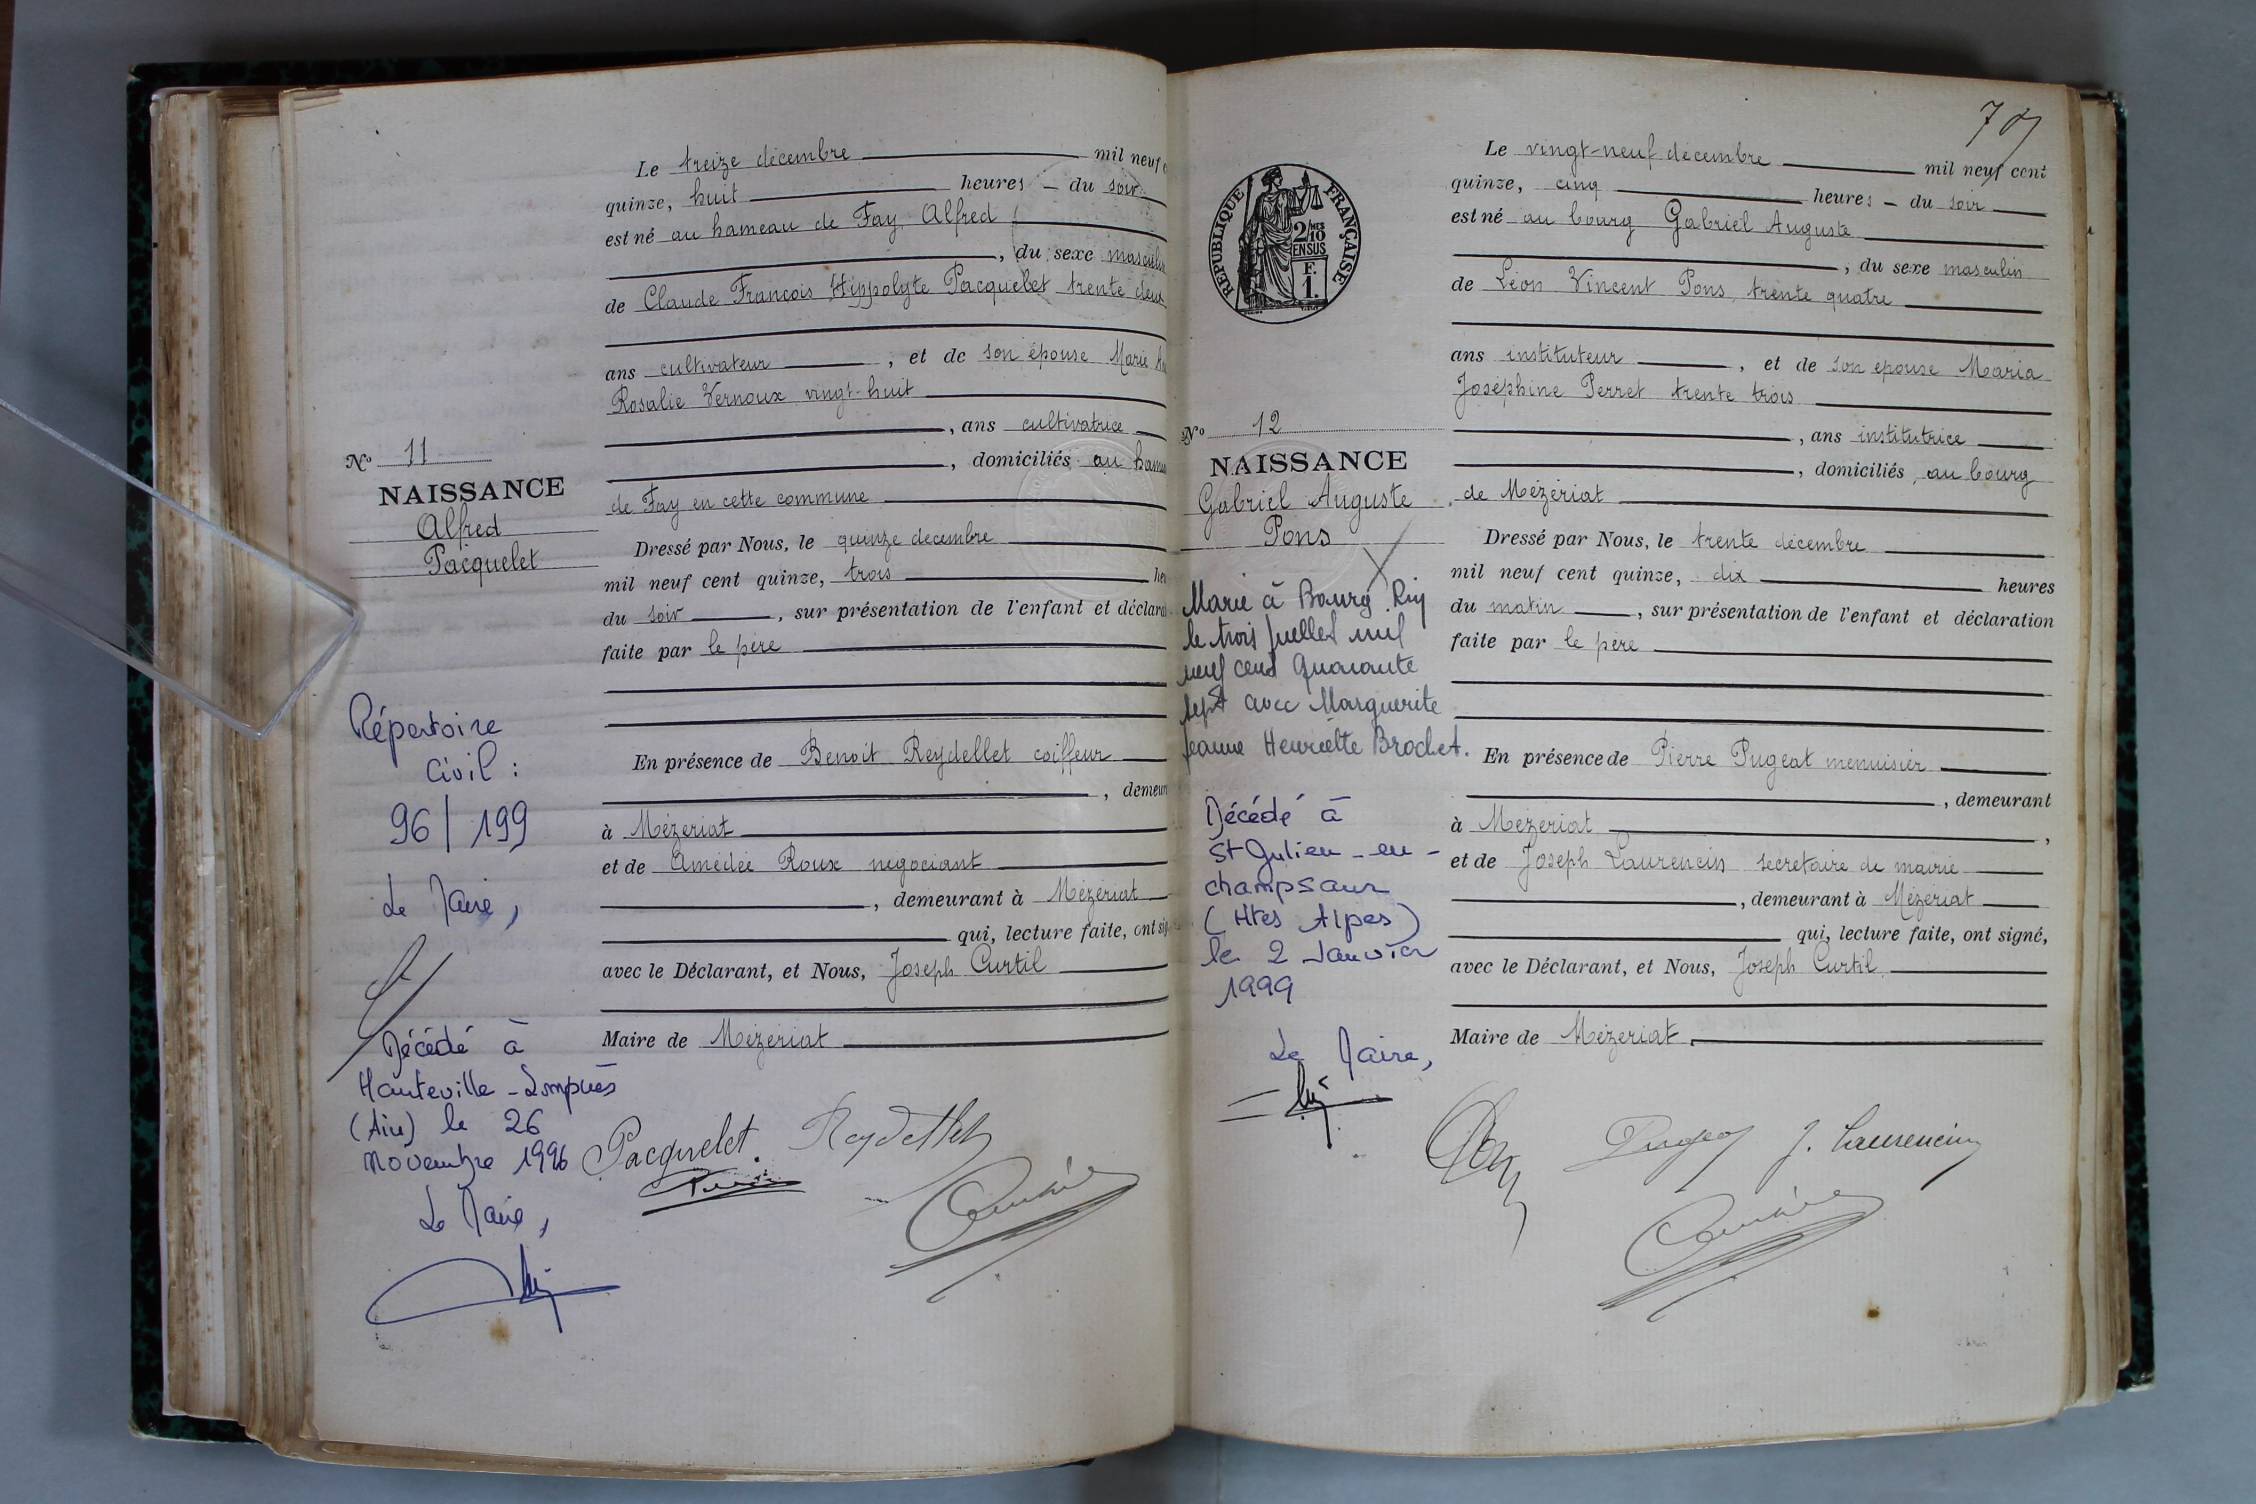 Le treize décembre mil neuf
quinze, huit heures - du soir
est né au hameau de Fay Alfred
, du sexe masculin
de Claude François Hippolyte Pacquelet trente deux
ans cultivateur , et de son épouse Marie
Rosalie Vernoux vingt-huit
, ans cultivatrice
, domiciliés au
de Fay en cette commune
Dressé par Nous, le quinze décembre
mil neuf cent quinze, trois
du soir , sur présentation de l'enfant et
faite par le père
En présence de Benoit Reydellet coiffeur
à Mézériat
et de Amédée Roux négociant
, demeurant à Mézériat
qui, lecture faite, ont
avec le Déclarant, et Nous, Joseph Curtil
Maire de Mézériat
Pacquelet. Reydellet
Nº 11
NAISSANCE
Alfred
Pacquelet
Répertoire
Civil :
96/199
Le Maire,
Décédé à
Hauteville-Lompnès
(Ain) le 26
novembre 1996
Le Maire,
78
Le vingt-neuf décembre mil neuf cent
quinze, cinq heures - du soir
est né au bourg Gabriel Auguste
, du sexe masculin
de Léon Vincent Pons, trente quatre
ans instituteur , et de son épouse Maria
Joséphine Perret trente trois
, ans institutrice
, domiciliés au bourg
de Mézériat
Dressé par Nous, le trente décembre
mil neuf cent quinze, dix heures
du matin , sur présentation de l'enfant et déclaration
faite par le père
En présence de Pierre Pugeat menuisier
, demeurant
à Mézériat ,
et de Joseph Laurencin secrétaire de mairie
, demeurant à Mézériat
qui, lecture faite, ont signé,
avec le Déclarant, et Nous, Joseph Curtil
Maire de Mézériat
Pons Pugeat J. Laurencin
RÉPUBLIQUE FRANÇAISE
2/10 MES
EN SUS
F.
1.
Nº 12
NAISSANCE
Gabriel Auguste
Pons
Marié à Bourg
le trois juillet mil
neuf cent quarante
sept avec Marguerite
Jeanne Henriette Brochet.
Décédé à
St Julien-en-
champsaur
(Htes Alpes)
le 2 Janvier
1999
Le Maire,